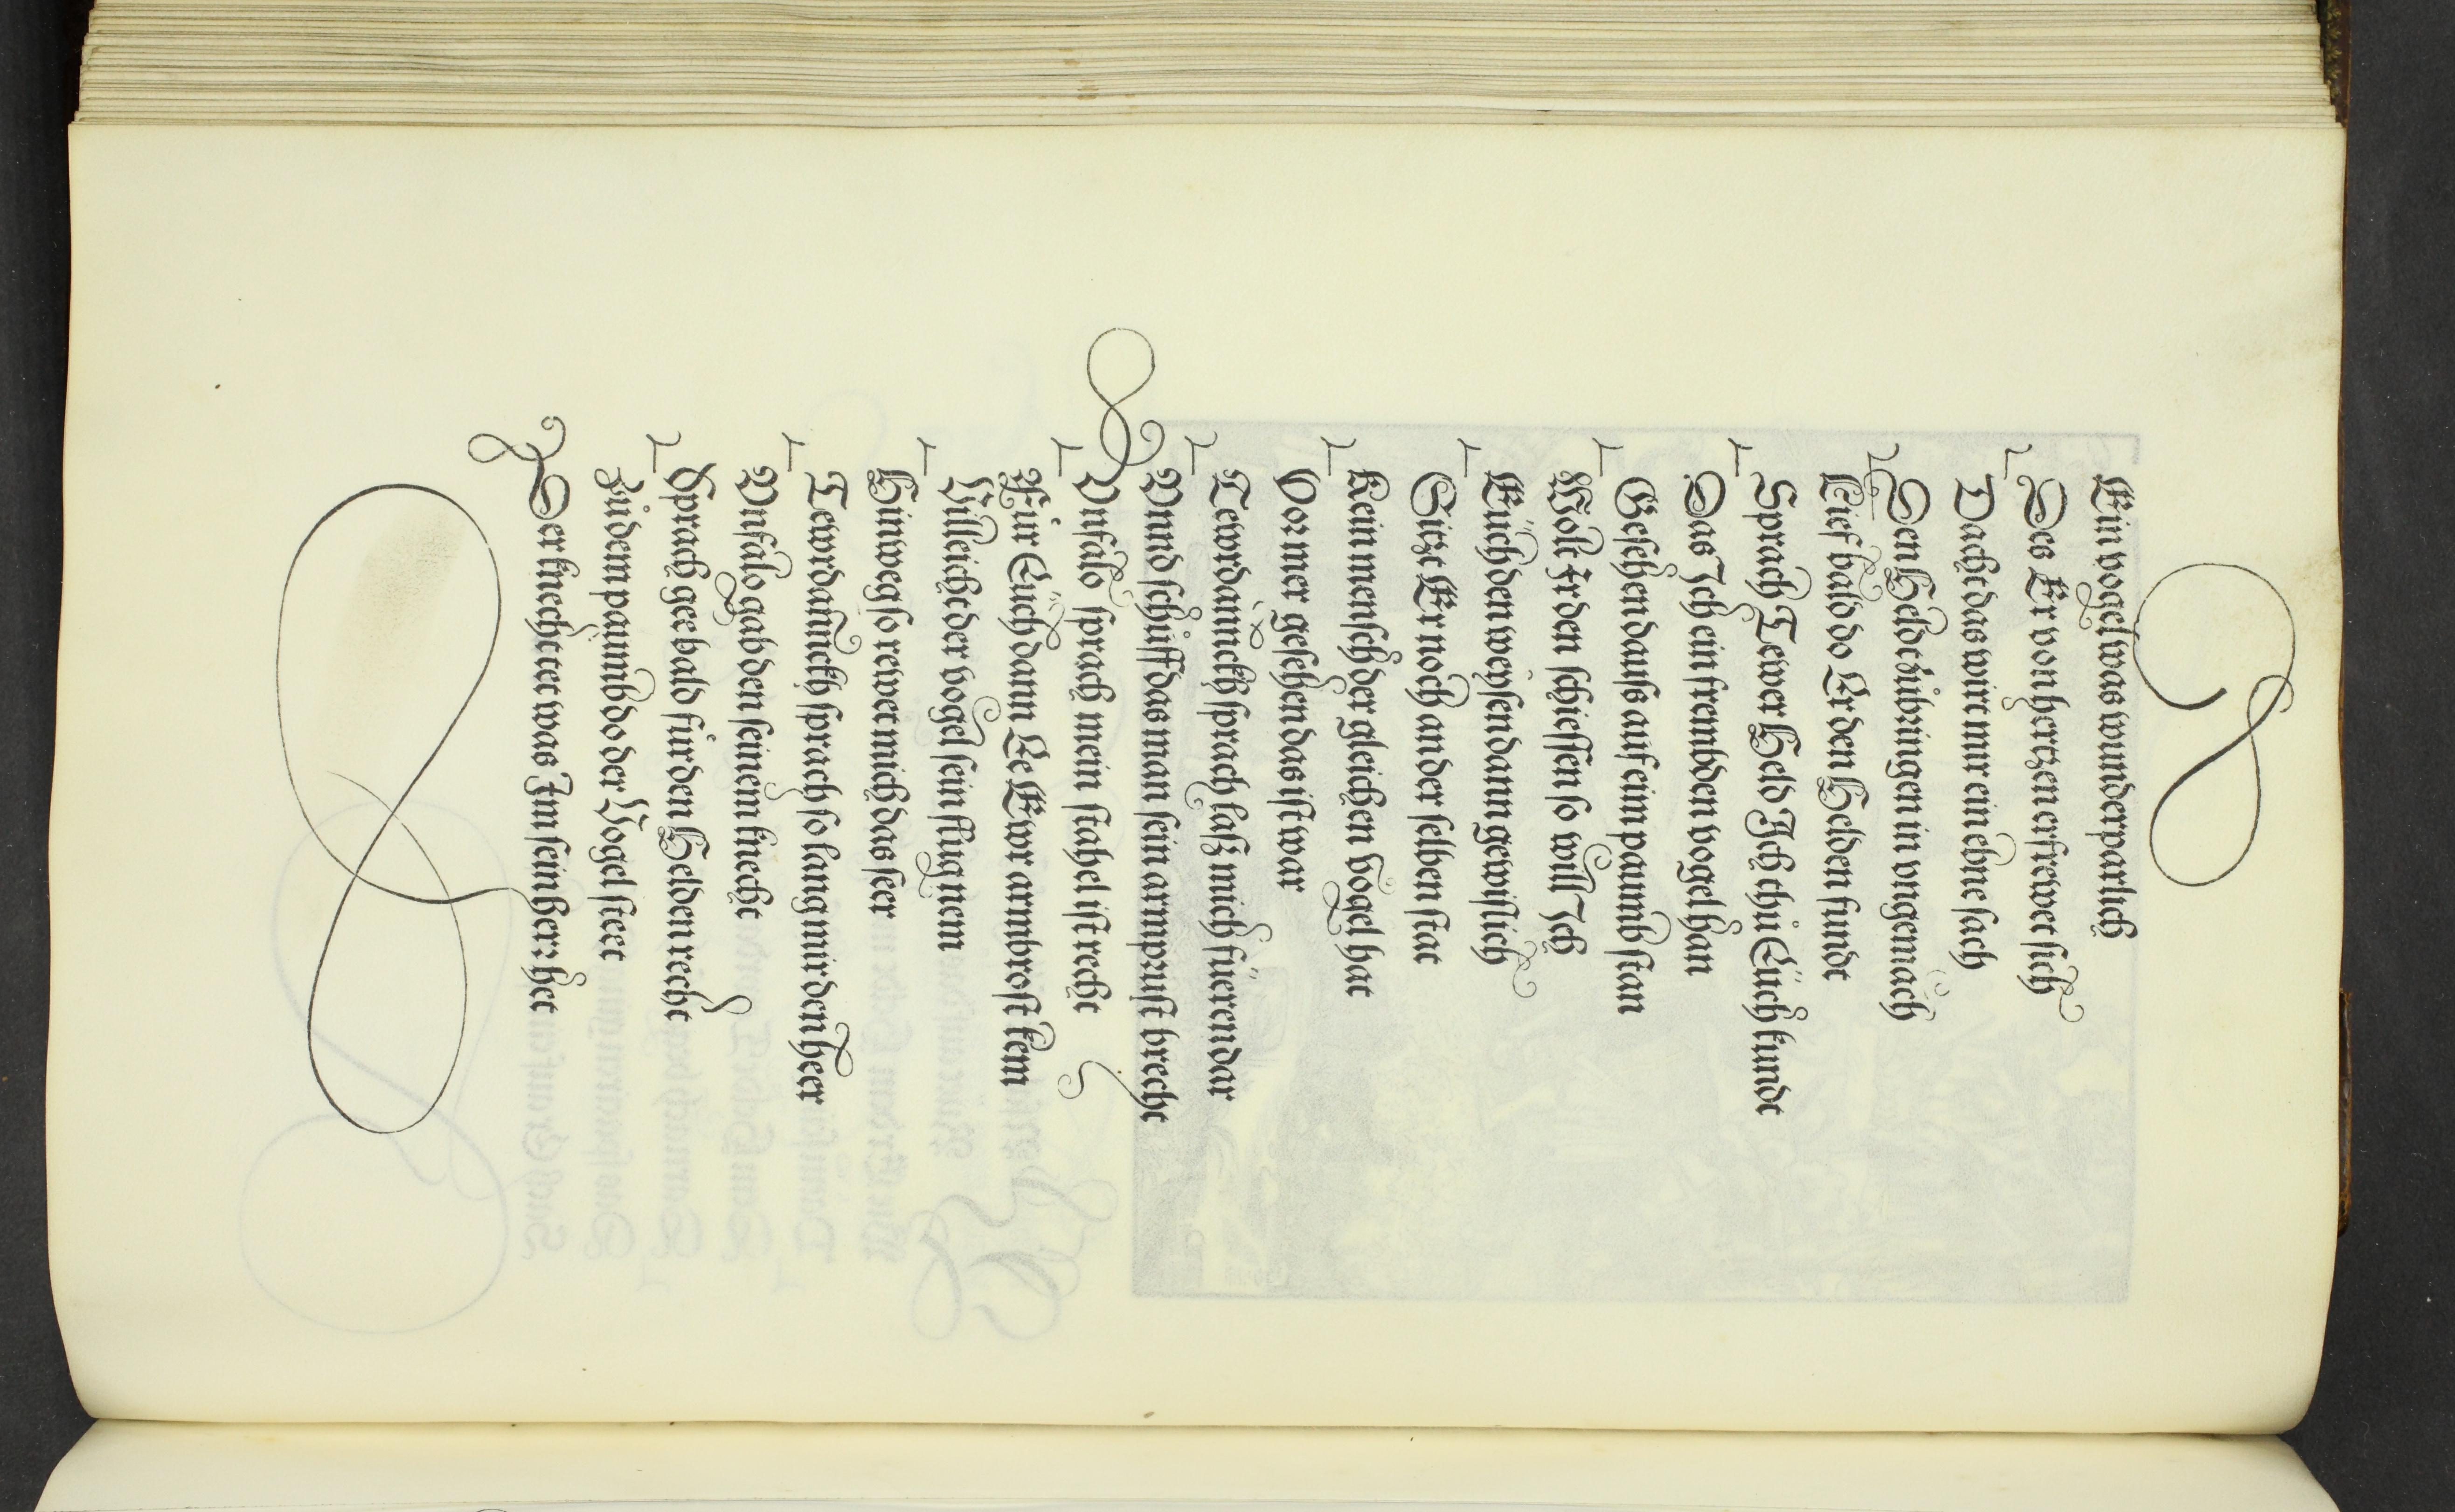 Ein vogel was wunderparlich
Des Er von hertzen erfrewet sich
Dacht das wirt mir ein ebne sach
Den Held zůbringen in vngemach
Lief bald do Er den Helden fundt
Sprach Tewer Held Ich thů Eůch kundt
Das Ich ein frembden vogel han
Gesehen dauss auf eim paumb stan
Wolt Ir den schiessen so will Ich
Eůch den weysen dann gewißlich
Sitzt Er noch an der selben stat
Kein mensch der gleichen vogel hat
Vor mer gesehen das ist war
Tewrdannckh sprach laß mich füeren dar
Vnnd schůff das man sein armprust brecht
Vnfalo sprach mein stahel ist recht
Für Eůch dann Ee Ewr armbrost kem
Villeicht der vogel sein flug nem
Hinweg so rewet mich das seer
Tewrdannckh sprach so lang mir den heer
Vnfalo gab den seinem knecht
Sprach gee bald für den Helden recht
Zů dem paumb do der Vogel steet
Der knecht tet was Im sein herr het